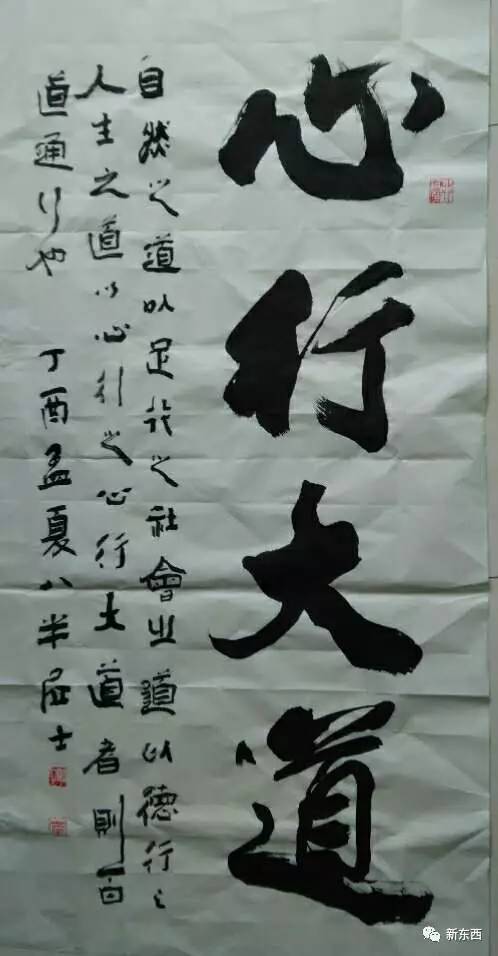 心行大道
自然之道以足行之社會之道以德行之
人生之道以心行之心行大道者則百
道通行也 丁酉孟夏八半居士
新东西